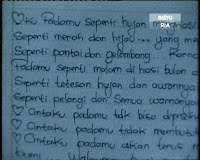 ♡ku Padamu Seperti hujan
Seperti merah dan hijau... yang me
Seperti pantai dan gelombang...
Padamu seperti malam di hari bulan
Seperti tetesan hujan dan awannya
Seperti pelangi dan Semua warnanya
♡Cintaku padamu tdk bisa dipis
♡Cintaku padamu tidak membutu
♡Cintaku padamu akan terus
astro
RIA